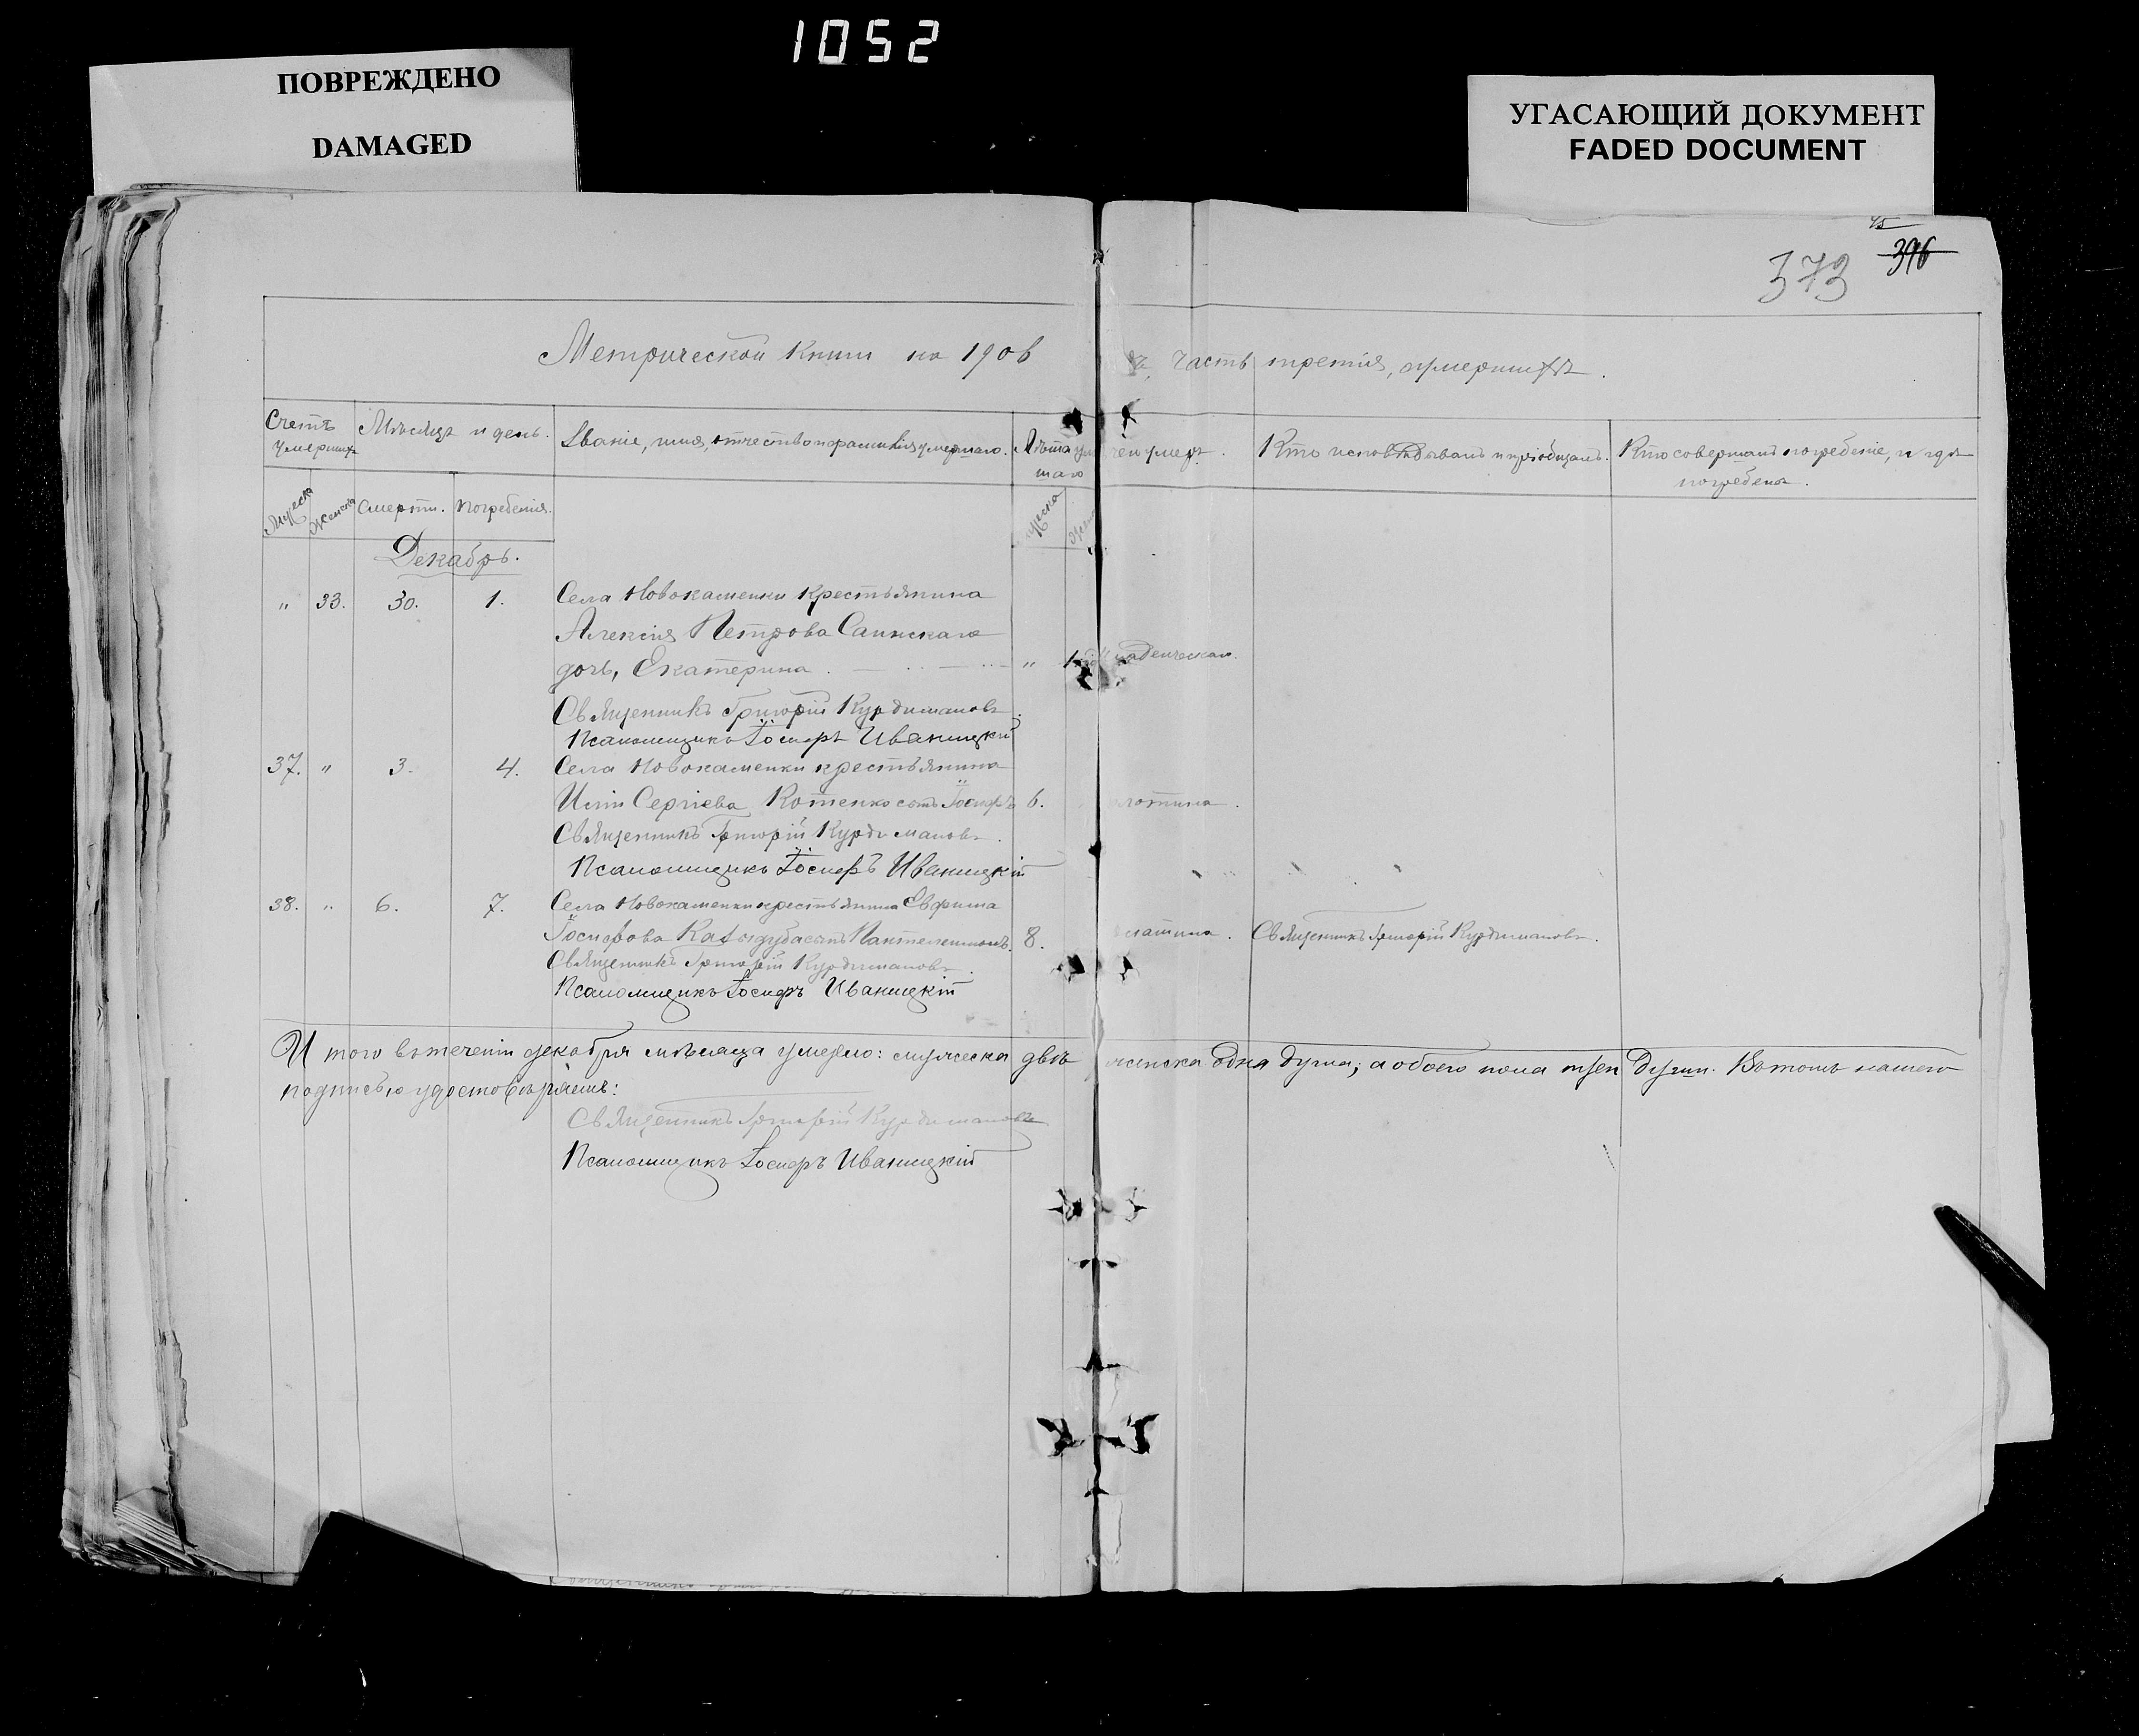 1052
ПОВРЕЖДЕНО
DAMAGED
УГАСАЮЩИЙ ДОКУМЕНТ
FADED DOCUMENT
45
396
373
Метрической книги на 1906 г. часть третія, умершихъ.
Счетъ умершихъ
Мѣсяцъ и день.
Званіе, имя, отчество и фамилія умершаго.
Лѣта умершаго
чего умеръ.
Кто исповѣдывалъ и пріобщалъ.
Кто совершалъ погребеніе, и гдѣ погребены.
Мужеска
Женска
Смерти.
Погребенія.
Мужеска
Женска
Декабрь.
" 33. 30. 1. Села Новокаменки крестьянина
Алексія Петрова
дочь, Екатерина. " 1
Священникъ Григорій Курдимановъ.
Псаломщикъ Іосифъ Иваницкій
37. " 3. 4. Села Новокаменки крестьянина
Иліи Сергіева Котенко сынъ Іосифъ 6.
Священникъ Григорій Курдимановъ.
Псаломщикъ Іосифъ Иваницкій
38. " 6. 7. Села Новокаменки крестьянина Евфима
Іосифова сынъ Пантелеимонъ. 8. Священникъ Григорій Курдимановъ.
Священникъ Григорій Курдимановъ.
Псаломщикъ Іосифъ Иваницкій
Итого въ теченіи декабря мѣсяца умерло: мужеска двѣ женска одна душа; а обоего пола три души. Въ томъ нашего
подписью удостовѣряемъ:
Священникъ Григорій Курдимановъ
Псаломщикъ Іосифъ Иваницкій